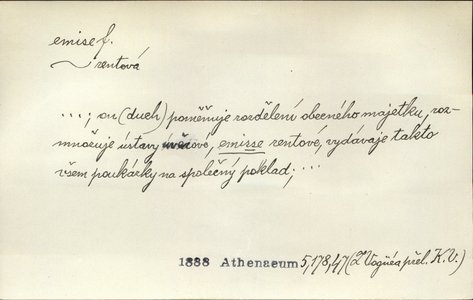 emise f.
~ rentová
...; on (duch) poměňuje rozdělení obecného majetku, roz-
množuje ústavy úvěrové, emisse rentové, vydávaje takto
všem poukázky na společný poklad; ...
1888 Athenaeum 5,178,47 (Z Vogüéa přel. K.V.)